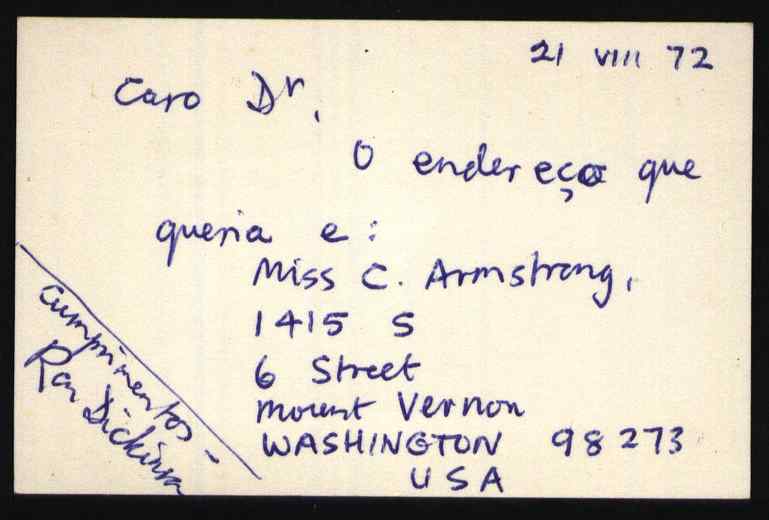 21 VIII 72
Caro Dr,
O endereço que
queria e:
Miss C. Armstrong,
1415 S
6 Street
Mount Vernon
WASHINGTON 98273
USA
Cumprimentos -
Ron Dickinson